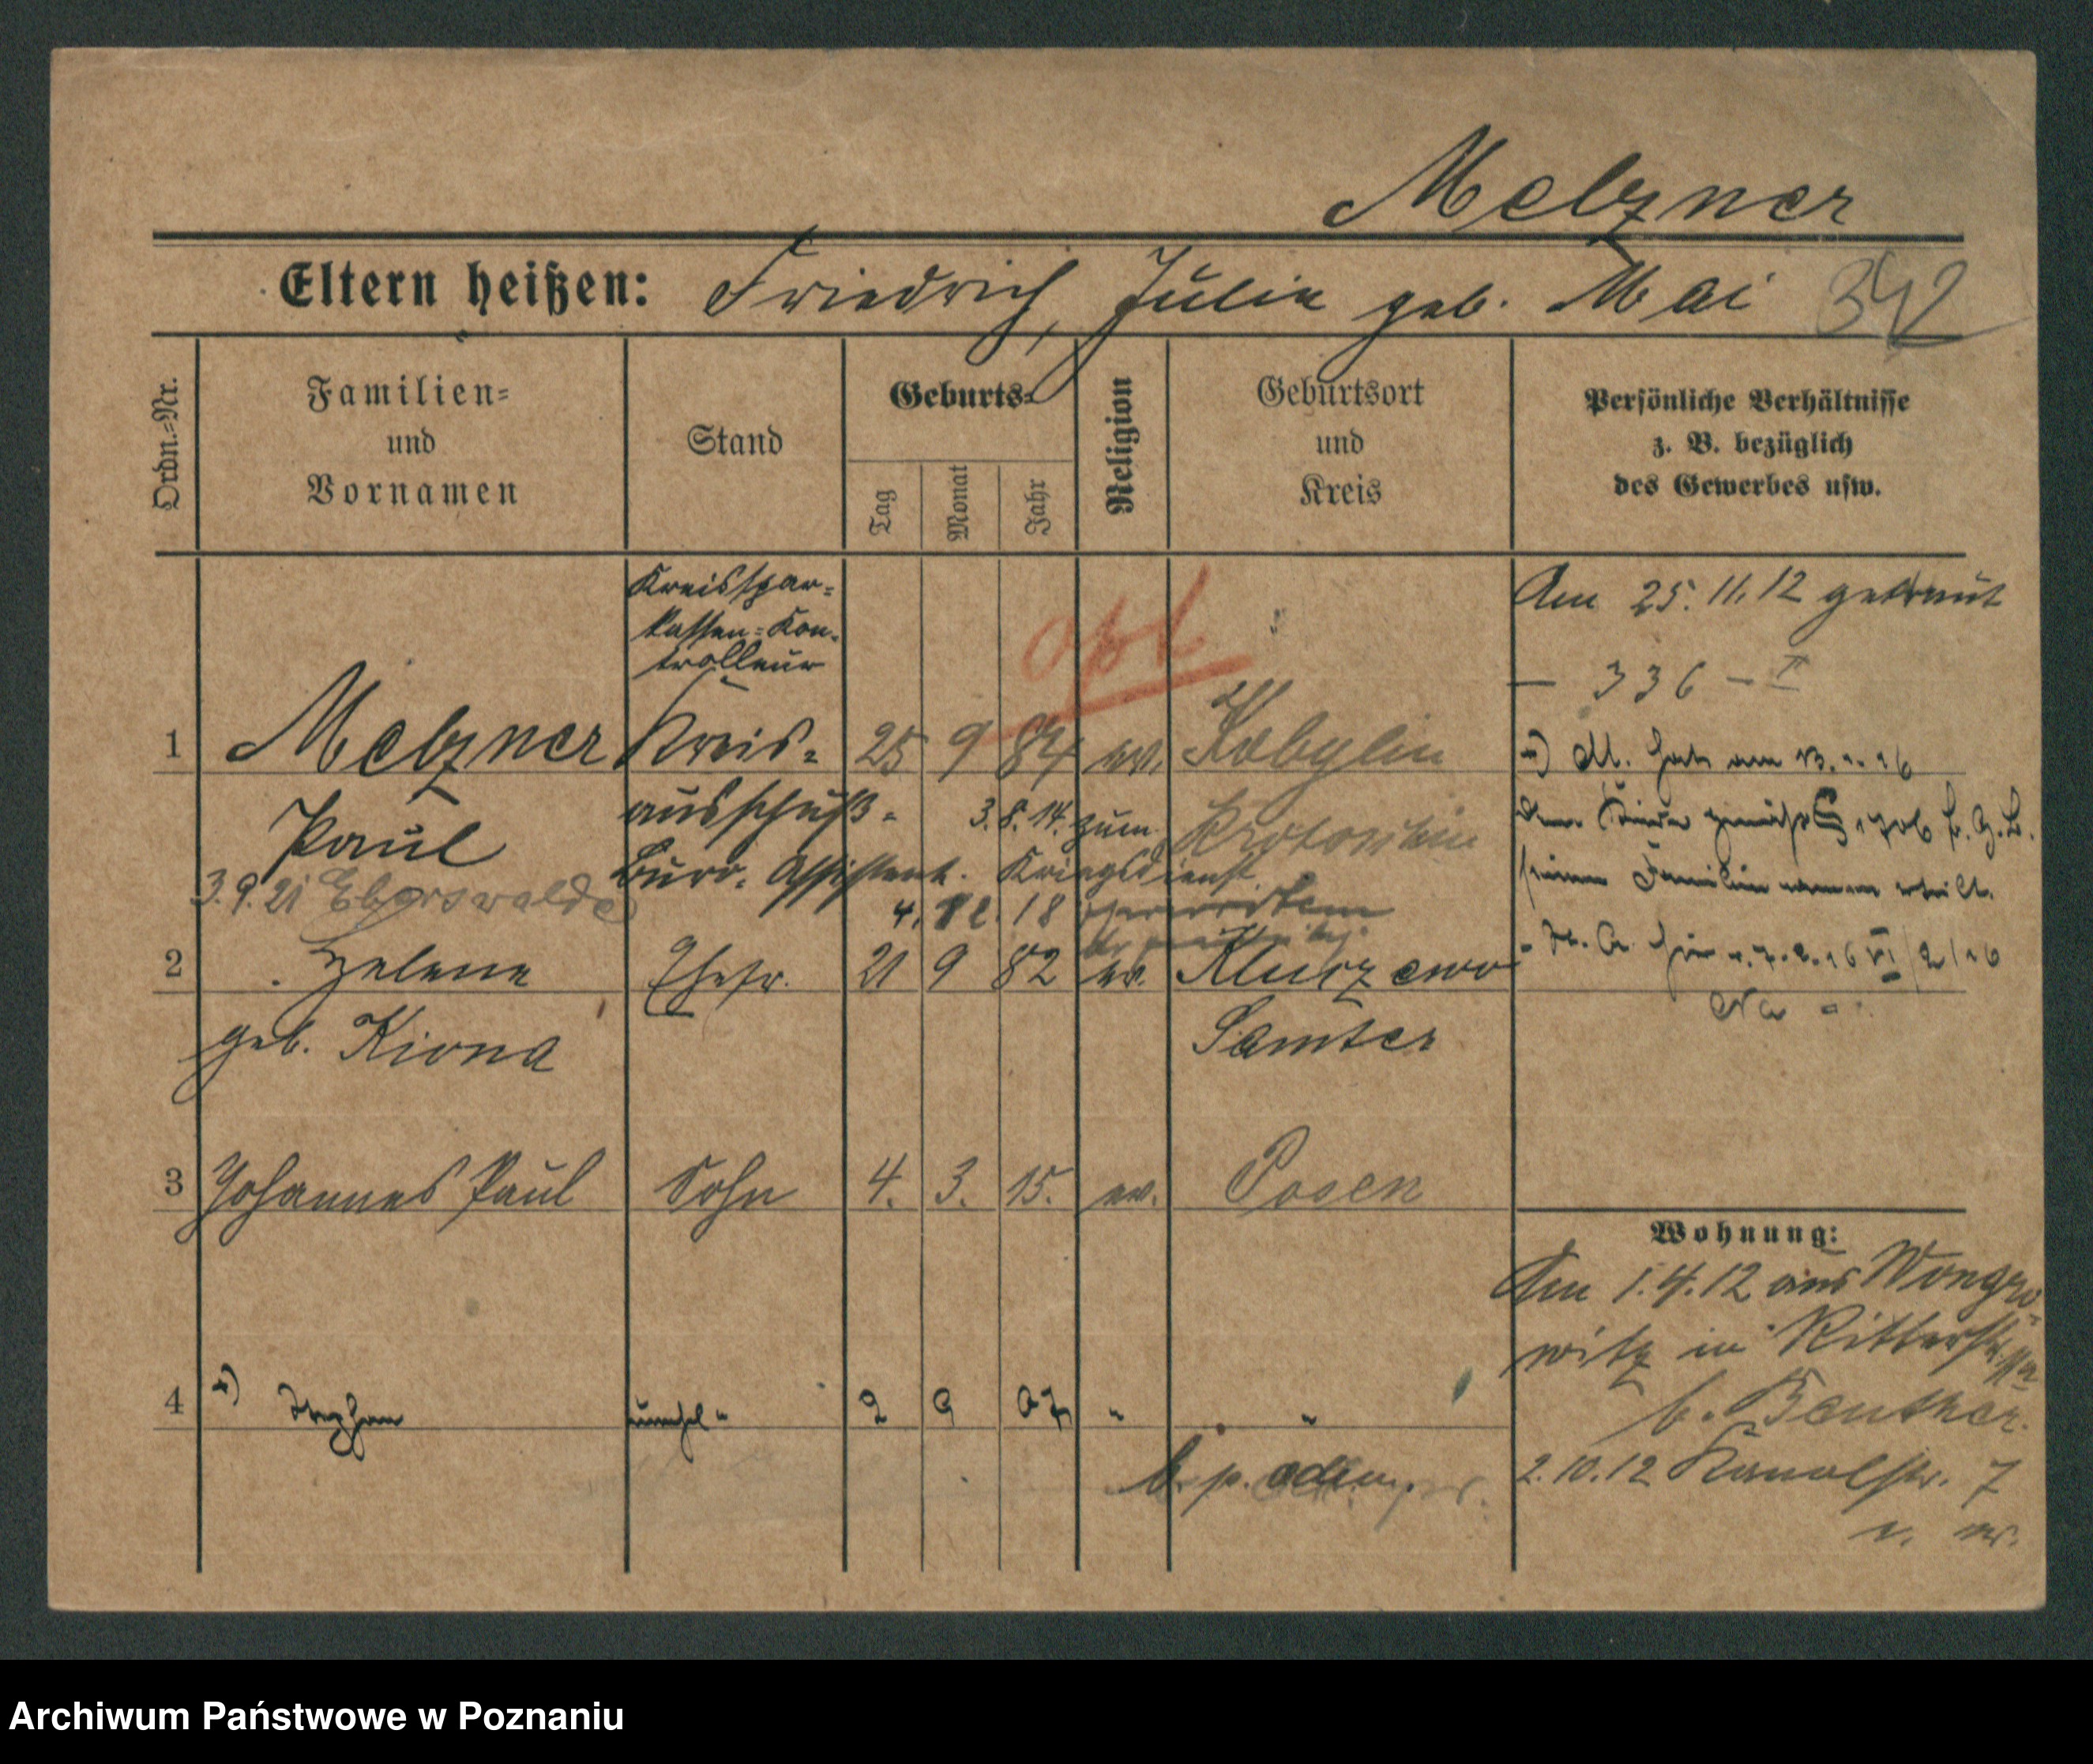 Melzner
Eltern heißen: Friedrich, Julie geb. Mai 342
Ordn.-Nr.
Familien-
und
Vornamen
Stand
Geburts-
Tag
Monat
Jahr
Religion
Geburtsort
und
Kreis
Persönliche Verhältnisse
z. B. bezüglich
des Gewerbes usw.
Kreisspar-
kassen-Kon-
trolleur
opt
Am 25.11.12 getraut
— 336 — II
1 Melzner Kreis- 25 9 84 ev. Kobylin
Paul ausschuß- 3.8.14. zum Krotoschin
3.9.21 Eberswalde Büro-Assistent. Kriegsdienst
4. 12. 18
+) M. hat am 13.
dem Kinde gemäß § 1706 B.G.B.
seinen Familiennamen erteilt.
2 Helene Ehefr. 21 9 82 ev. Kluczewo
geb. Kiona Samter
3 Johannes Paul Sohn 4. 3. 15. ev. Posen
4 +) Stephan 2 9 07 " "
b. p.
Wohnung:
Am 1.4.12 aus Wongro-
witz in Ritterstr.
b. Beuther.
2.10.12 Kanalstr. 7
Archiwum Państwowe w Poznaniu